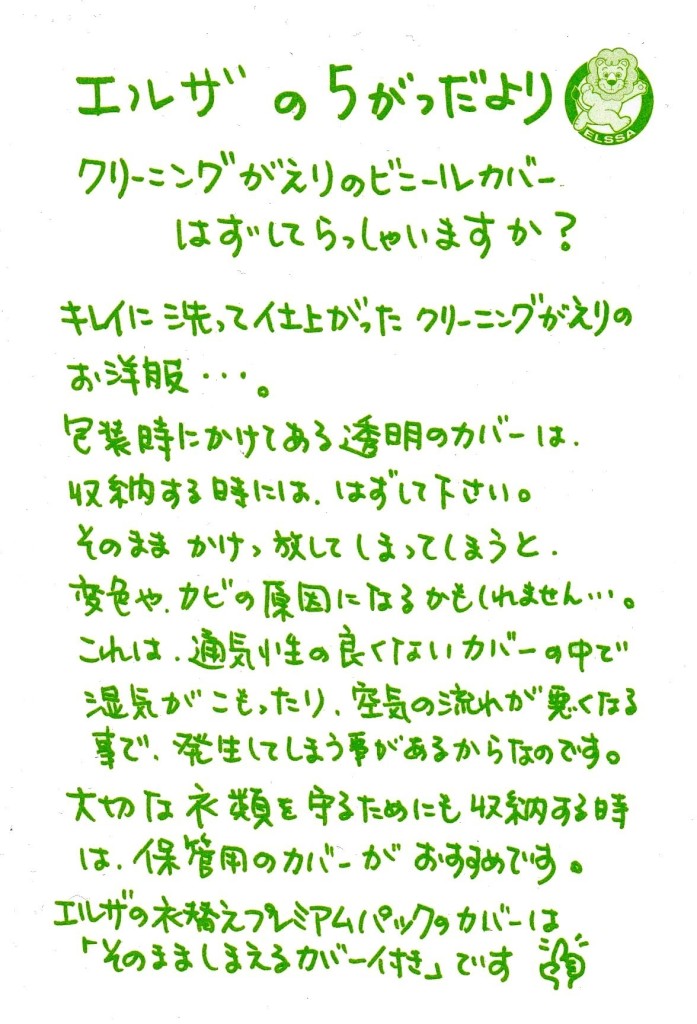 エルザの5がつだより
ELSSA
クリーニングがえりのビニールカバー
はずしてらっしゃいますか？
キレイに洗って仕上がったクリーニングがえりの
お洋服・・・。
包装時にかけてある透明のカバーは、
収納する時には、はずして下さい。
そのままかけっ放してしまってしまうと、
変色や、カビの原因になるかもしれません・・・。
これは、通気性の良くないカバーの中で
湿気がこもったり、空気の流れが悪くなる
事で、発生してしまう事があるからなのです。
大切な衣類を守るためにも収納する時
は、保管用のカバーがおすすめです。
エルザの衣替えプレミアムパックのカバーは
「そのまましまえるカバー付き」です